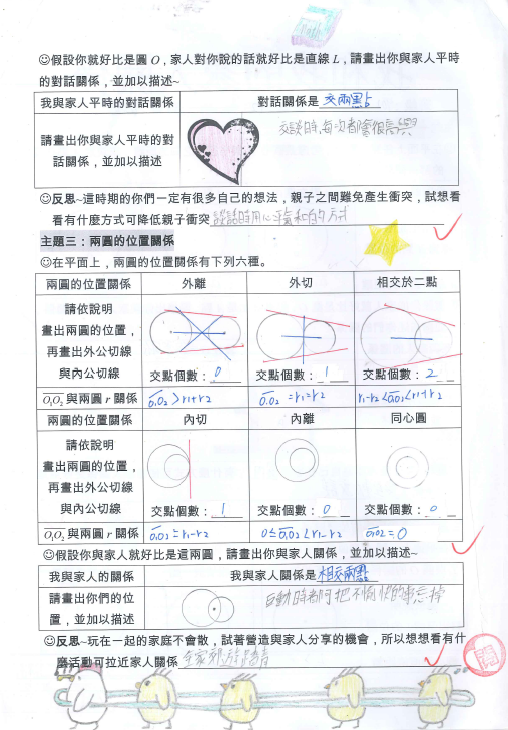 ☺假設你就好比是圓 O，家人對你說的話就好比是直線 L，請畫出你與家人平時
的對話關係，並加以描述~
我與家人平時的對話關係 對話關係是 交兩點
請畫出你與家人平時的對
話關係，並加以描述
交談時,每次都會很高興
☺反思~這時期的你們一定有很多自己的想法，親子之間難免產生衝突，試想看
看有什麼方式可降低親子衝突 談話時用心平氣和的方式
主題三：兩圓的位置關係
☺在平面上，兩圓的位置關係有下列六種。
兩圓的位置關係 外離 外切 相交於二點
請依說明
畫出兩圓的位置，
再畫出外公切線
與內公切線
交點個數：0 交點個數：1 交點個數：2
O₁O₂與兩圓 r 關係 O₁O₂>r₁+r₂ O₁O₂=r₁=r₂ r₁-r₂<O₁O₂<r₁+r₂
兩圓的位置關係 內切 內離 同心圓
請依說明
畫出兩圓的位置，
再畫出外公切線
與內公切線
交點個數：1 交點個數：0 交點個數：0
O₁O₂與兩圓 r 關係 O₁O₂=r₁-r₂ 0≤O₁O₂<r₁-r₂ O₁O₂=0
☺假設你與家人就好比是這兩圓，請畫出你與家人關係，並加以描述~
我與家人的關係 我與家人關係是 相交兩點
請畫出你們的位
置，並加以描述
把不愉快的事忘掉
☺反思~玩在一起的家庭不會散，試著營造與家人分享的機會，所以想想看有什
麼活動可拉近家人關係 全家郊遊踏青
閱